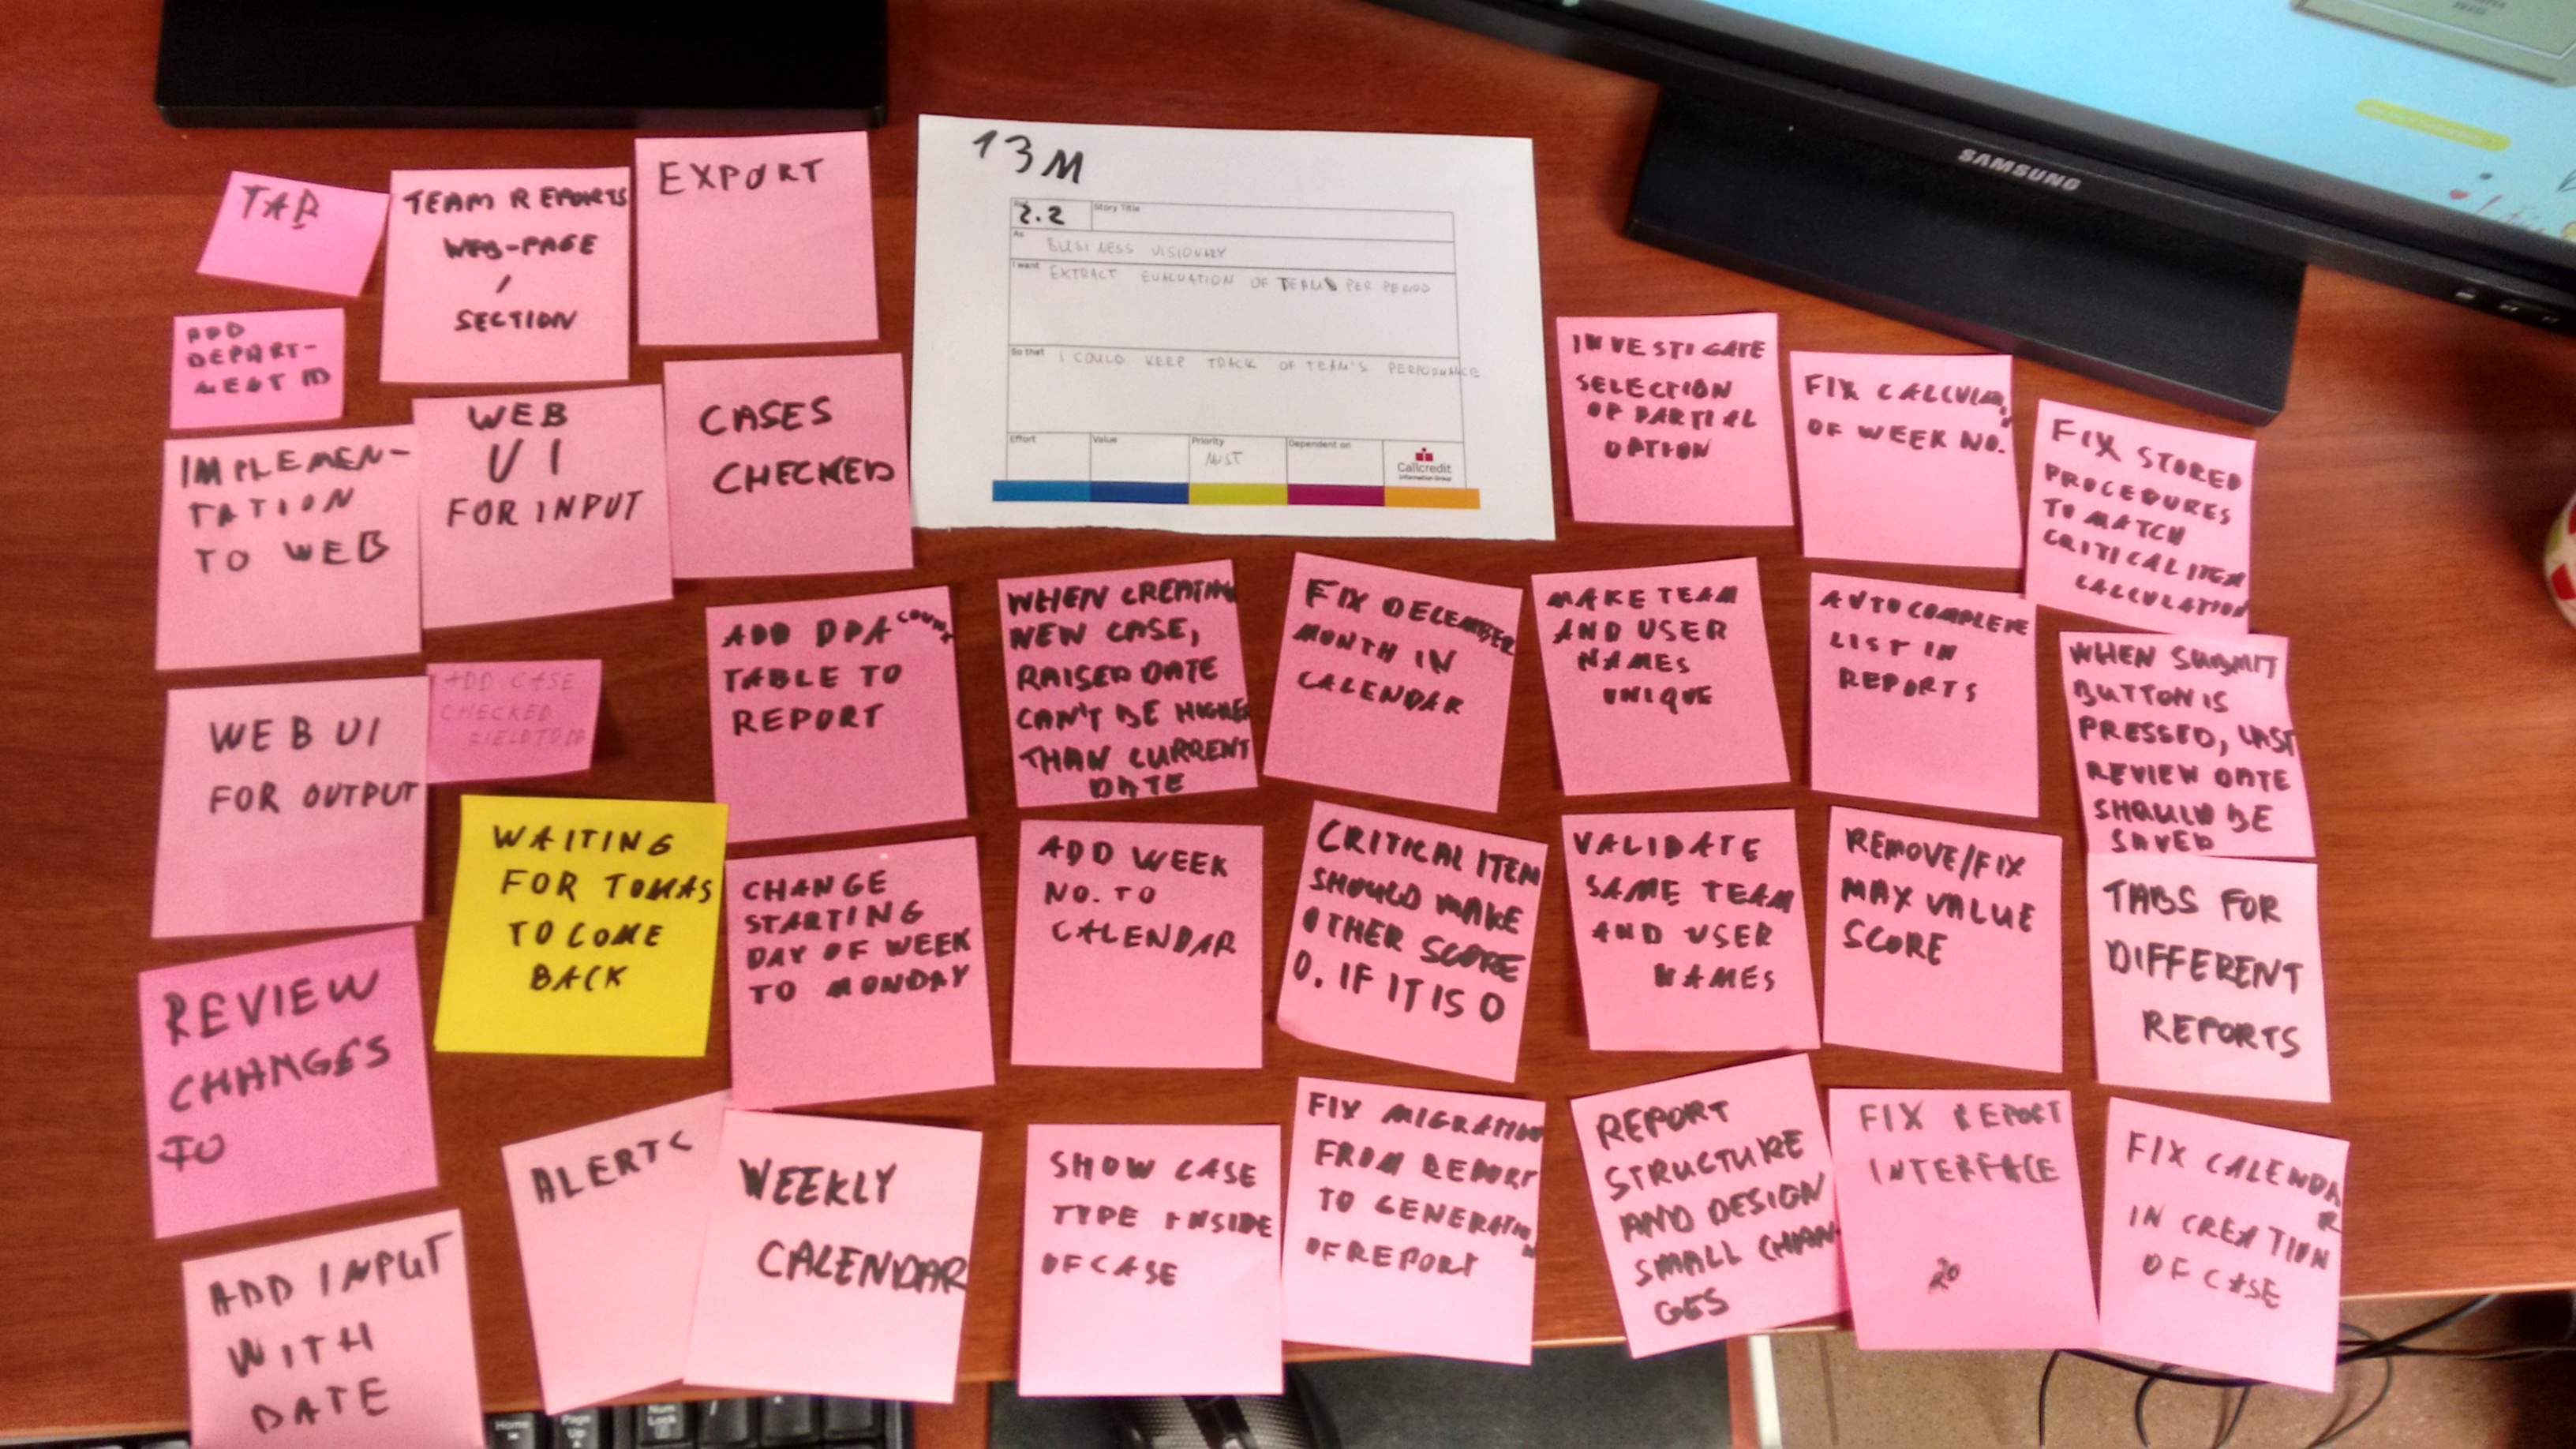 TAB
TEAM REPORTS
WEB-PAGE
/
SECTION
EXPORT
13 M
2.2
Story Title
As
BUSINESS VISIONARY
I want
EXTRACT EVALUATION OF TEAMS PER PERIOD
So that
I COULD KEEP TRACK OF TEAM'S PERFORMANCE
Effort
Value
Priority
MUST
Dependent on
Callcredit
Information Group
SAMSUNG
ADD
DEPART-
MENT ID
IMPLEMEN-
TATION
TO WEB
WEB
UI
FOR INPUT
CASES
CHECKED
INVESTIGATE
SELECTION
OF PARTIAL
OPTION
FIX CALCULATION
OF WEEK NO.
FIX STORED
PROCEDURES
TO MATCH
CRITICAL ITEM
CALCULATION
WEB UI
FOR OUTPUT
ADD CASE
CHECKED
FIELD TO DB
ADD DPA COUNT
TABLE TO
REPORT
WHEN CREATING
NEW CASE,
RAISED DATE
CAN'T BE HIGHER
THAN CURRENT
DATE
FIX DECEMBER
MONTH IN
CALENDAR
MAKE TEAM
AND USER
NAMES
UNIQUE
AUTOCOMPLETE
LIST IN
REPORTS
WHEN SUBMIT
BUTTON IS
PRESSED, LAST
REVIEW DATE
SHOULD BE
SAVED
WAITING
FOR TOMAS
TO COME
BACK
CHANGE
STARTING
DAY OF WEEK
TO MONDAY
ADD WEEK
NO. TO
CALENDAR
CRITICAL ITEM
SHOULD MAKE
OTHER SCORE
0. IF IT IS 0
VALIDATE
SAME TEAM
AND USER
NAMES
REMOVE/FIX
MAX VALUE
SCORE
TABS FOR
DIFFERENT
REPORTS
REVIEW
CHANGES
TO
ALERTS
WEEKLY
CALENDAR
SHOW CASE
TYPE INSIDE
OF CASE
FIX MIGRATION
FROM REPORT
TO GENERATION
OF REPORT
REPORT
STRUCTURE
AND DESIGN
SMALL CHAN
GES
FIX REPORT
INTERFACE
FIX CALENDAR
IN CREATION
OF CASE
ADD INPUT
WITH
DATE
Home
Page
Up
Num
Lock
/